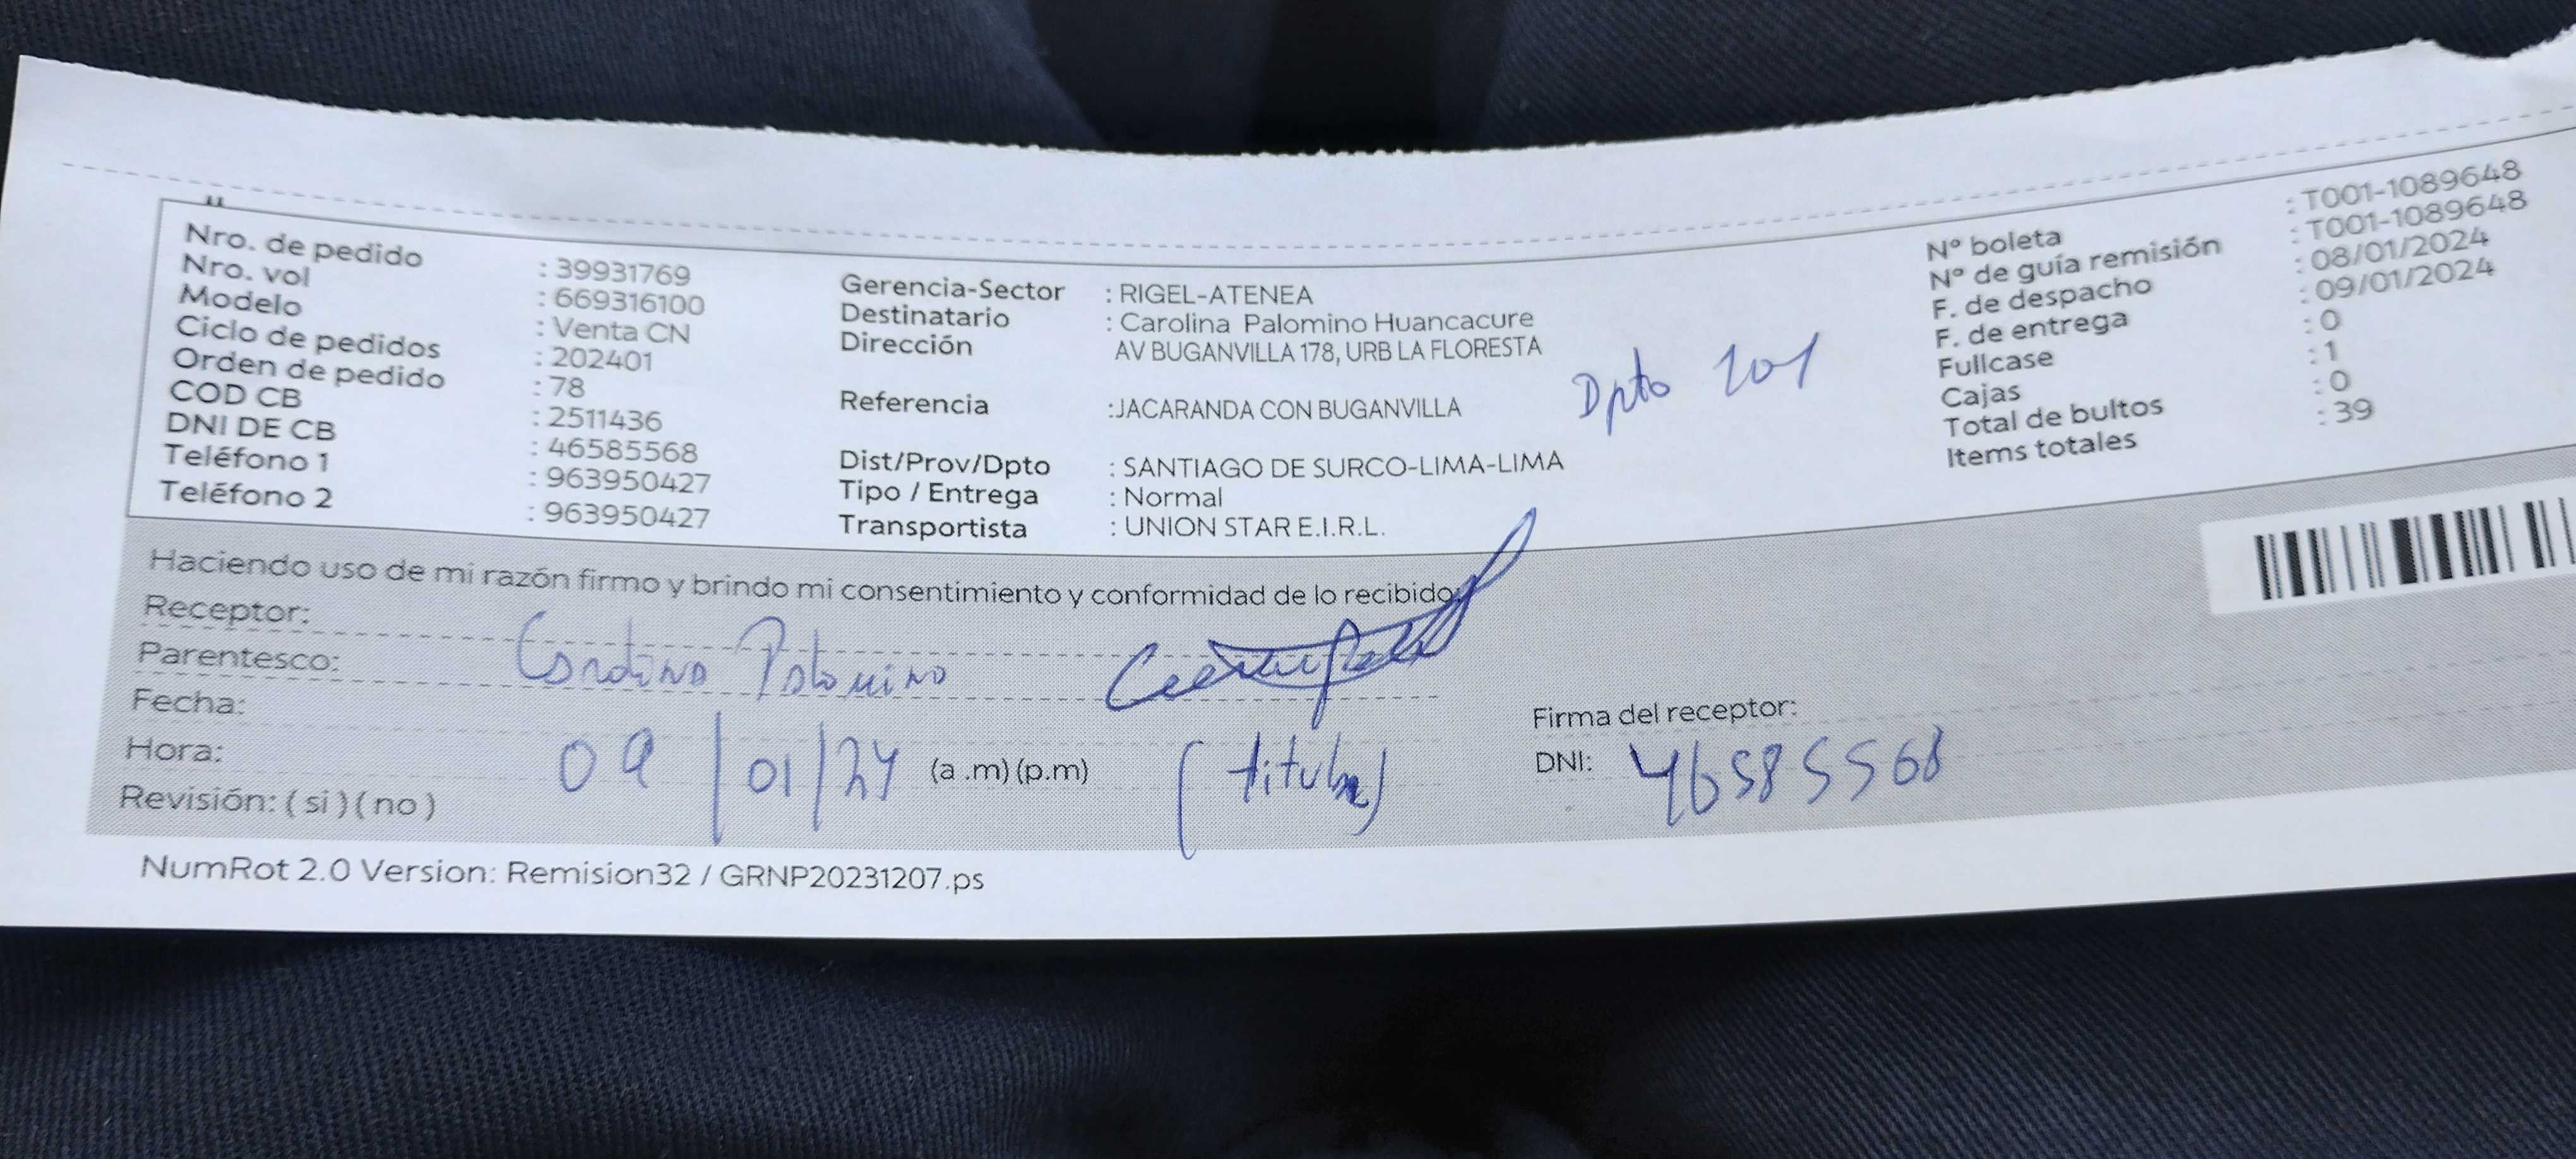 Nro. de pedido : 39931769
Nro. vol : 669316100
Modelo : Venta CN
Ciclo de pedidos : 202401
Orden de pedido : 78
COD CB : 2511436
DNI DE CB : 46585568
Teléfono 1 : 963950427
Teléfono 2 : 963950427
Gerencia-Sector : RIGEL-ATENEA
Destinatario : Carolina Palomino Huancacure
Dirección AV BUGANVILLA 178, URB LA FLORESTA
Dpto 201
Referencia :JACARANDA CON BUGANVILLA
Dist/Prov/Dpto : SANTIAGO DE SURCO-LIMA-LIMA
Tipo / Entrega : Normal
Transportista : UNION STAR E.I.R.L.
N° boleta : T001-1089648
N° de guía remisión : T001-1089648
F. de despacho : 08/01/2024
F. de entrega : 09/01/2024
Fullcase : 0
Cajas : 1
Total de bultos : 0
Items totales : 39
Haciendo uso de mi razón firmo y brindo mi consentimiento y conformidad de lo recibido.
Receptor:
Parentesco: Carolina Palomino
Fecha:
Firma del receptor:
Hora: 09/01/24 (a .m) (p.m) (titular) DNI: 46585568
Revisión: ( si ) ( no )
NumRot 2.0 Version: Remision32 / GRNP20231207.ps